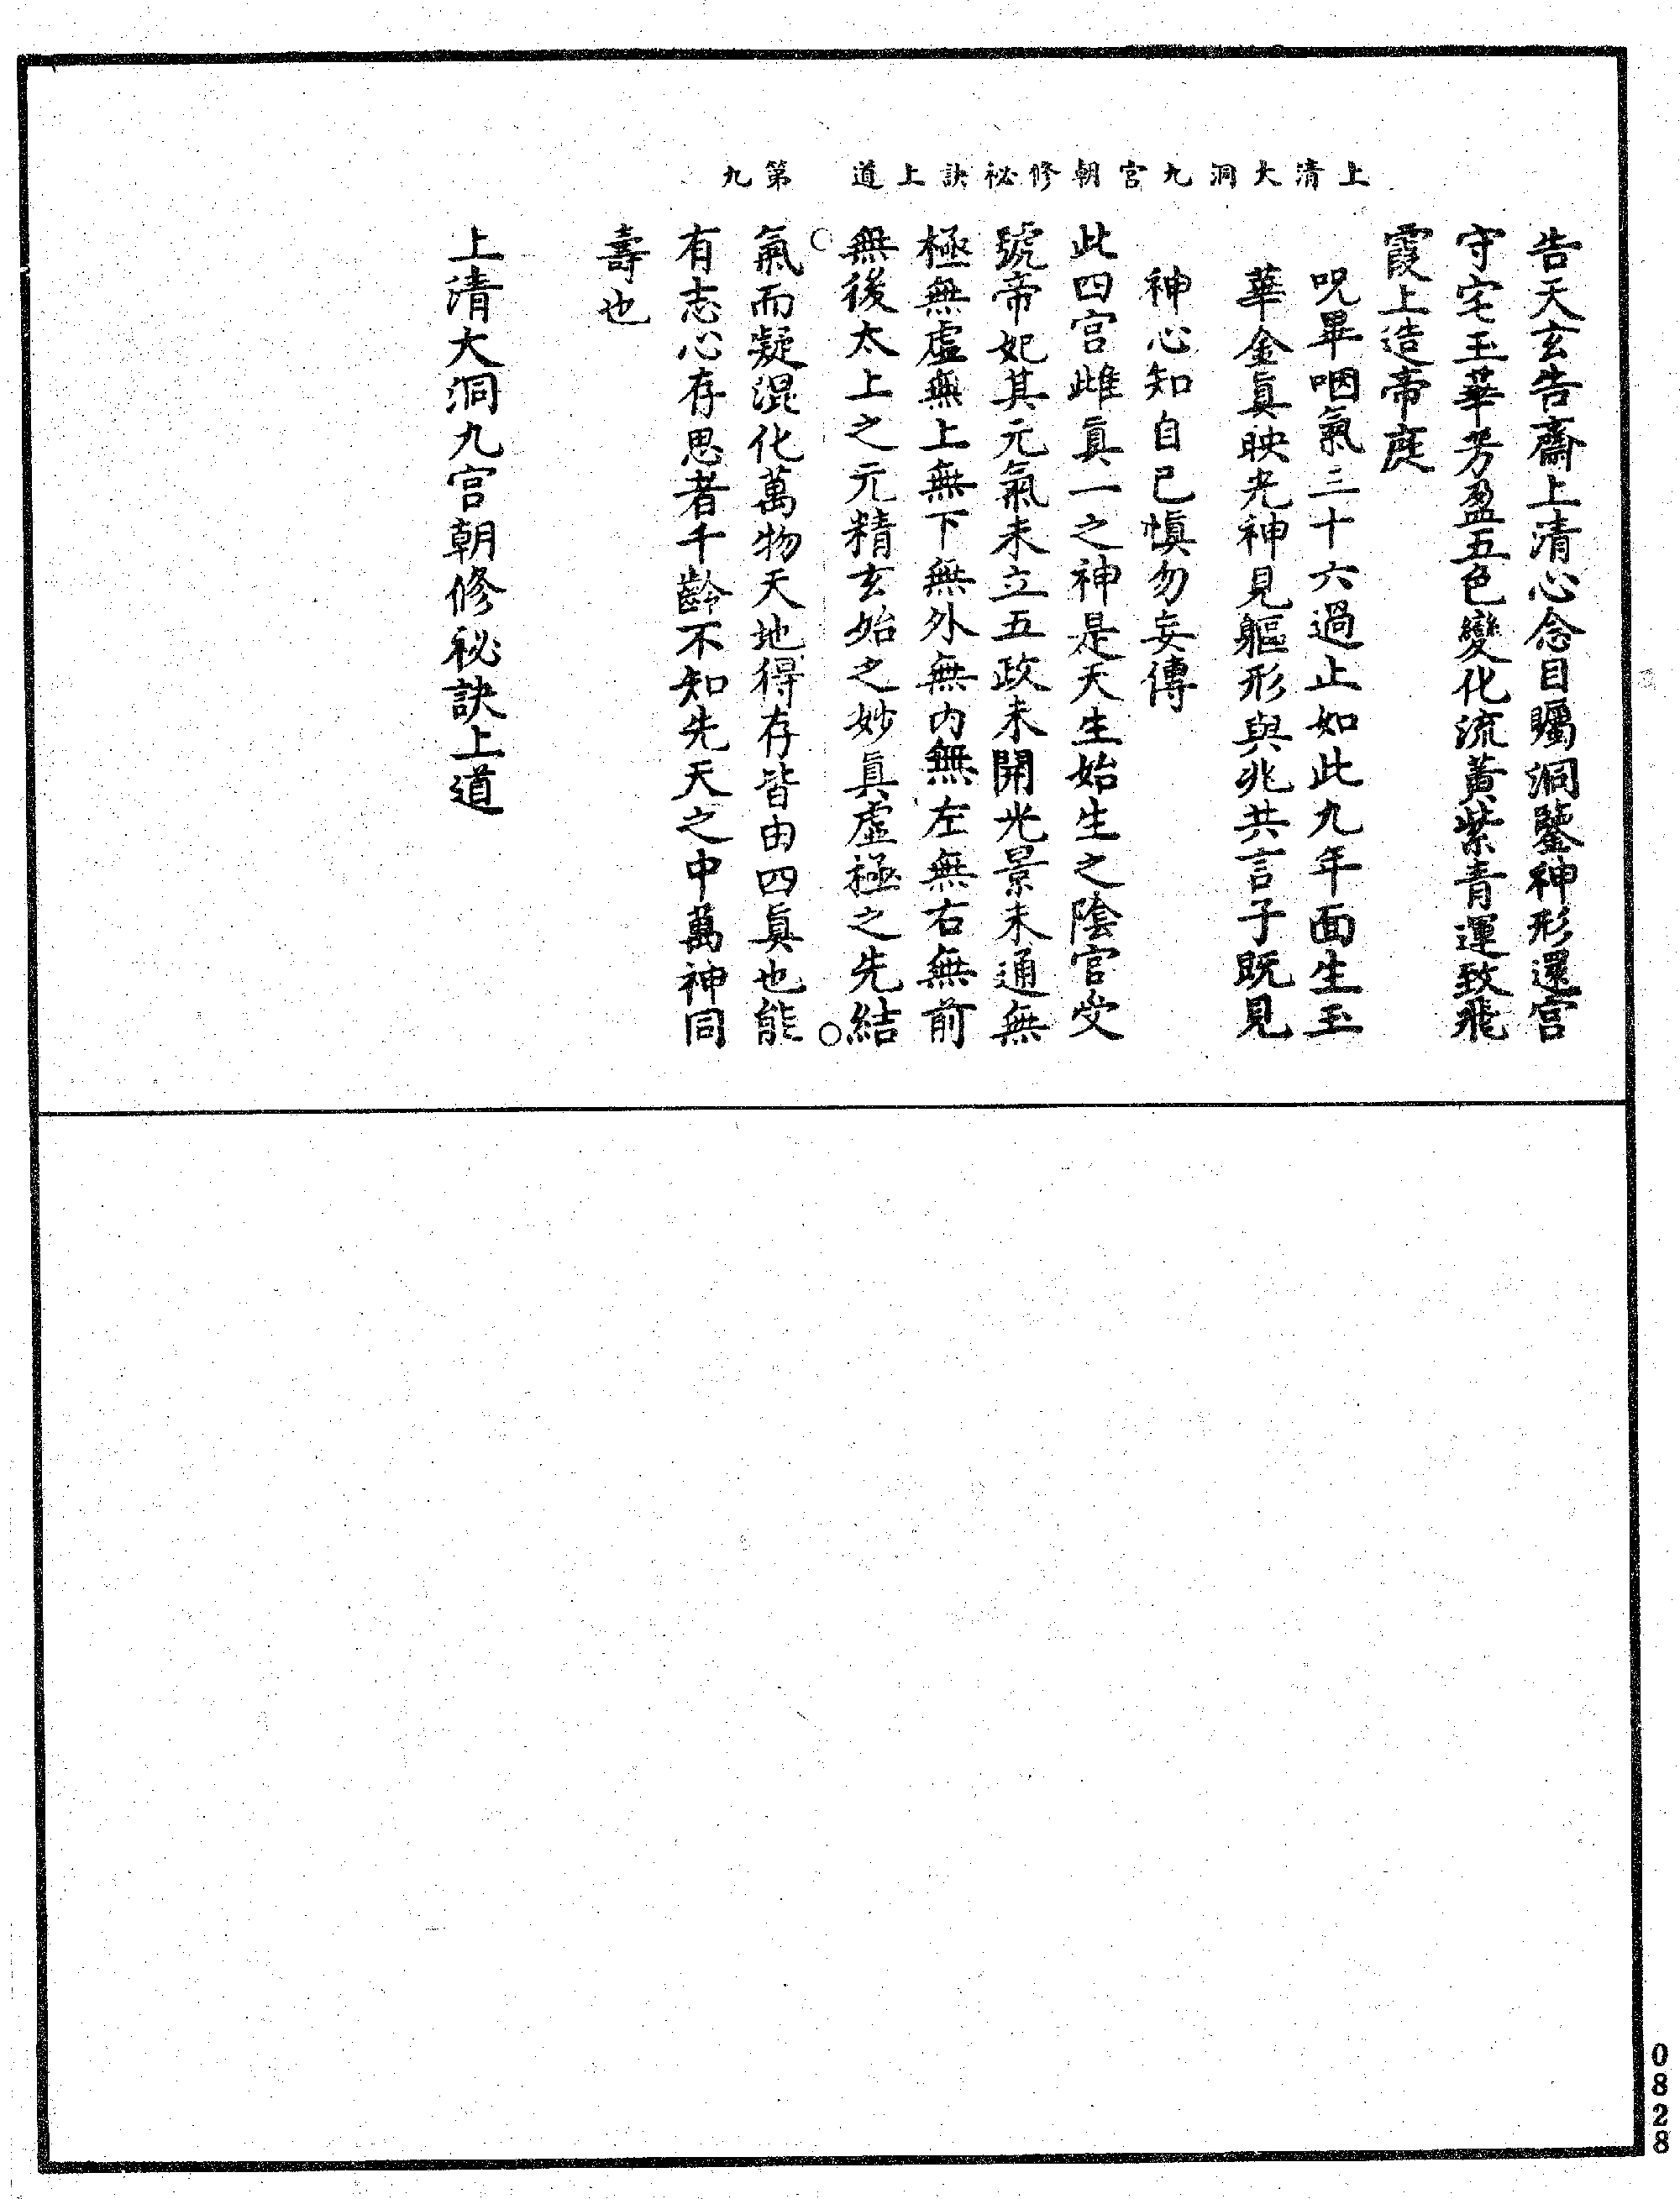 上清大洞九宮朝修祕訣上道　第九
告天玄告齋上清心念目矚洞鑒神形還宮
守宅玉華芳盈五色變化流黃紫青運致飛
霞上造帝庭
呪畢咽氣三十六過止如此九年面生玉
華金眞映光神見軀形與兆共言子既見
神心知自已愼勿妄傳
此四宮雌眞一之神是天生始生之陰宮受
號帝妃其元氣未立五政未開光景未通無
極無虛無上無下無外無內無左無右無前
無後太上之元精玄始之妙眞虛極之先結
氣而凝混化萬物天地得存皆由四眞也能
有志心存思者千齡不知先天之中萬神同
壽也
上清大洞九宮朝修祕訣上道
0828